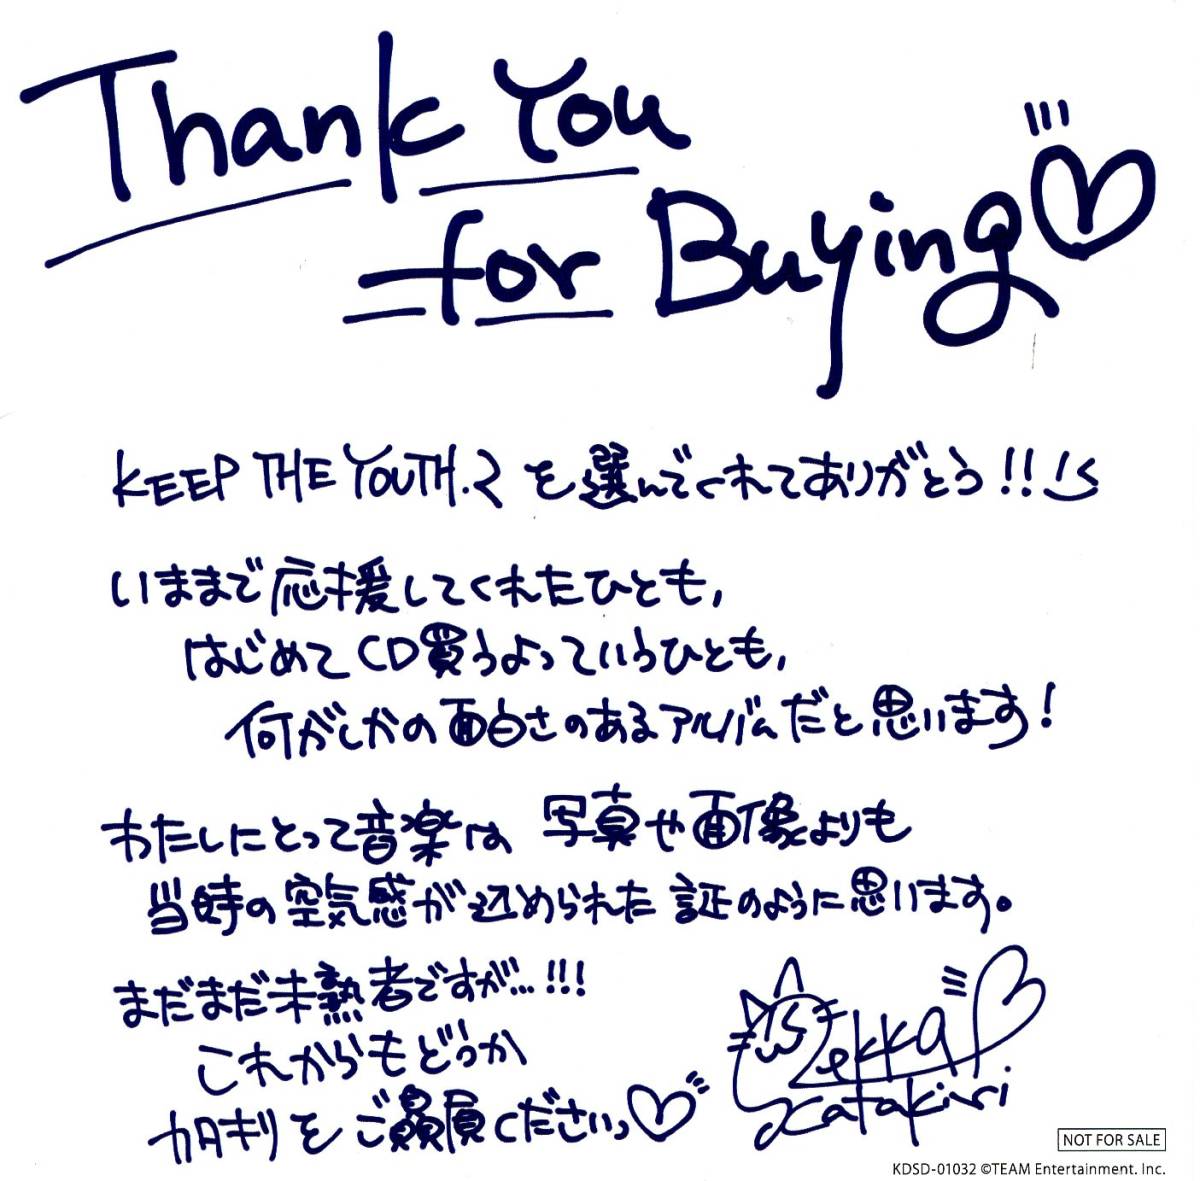 Thank You
for Buying♡
KEEP THE YOUTH.2 を選んでくれてありがとう!!
いままで応援してくれたひとも,
はじめてCD買うよっていうひとも,
何がしかの面白さのあるアルバムだと思います!
わたしにとって音楽は 写真や画像よりも
当時の空気感が込められた 証のように思います。
まだまだ未熟者ですが...!!!
これからもどうか
カタギリをご贔屓くださいっ♡
Rekka
Katakiri
NOT FOR SALE
KDSD-01032 ©TEAM Entertainment. Inc.